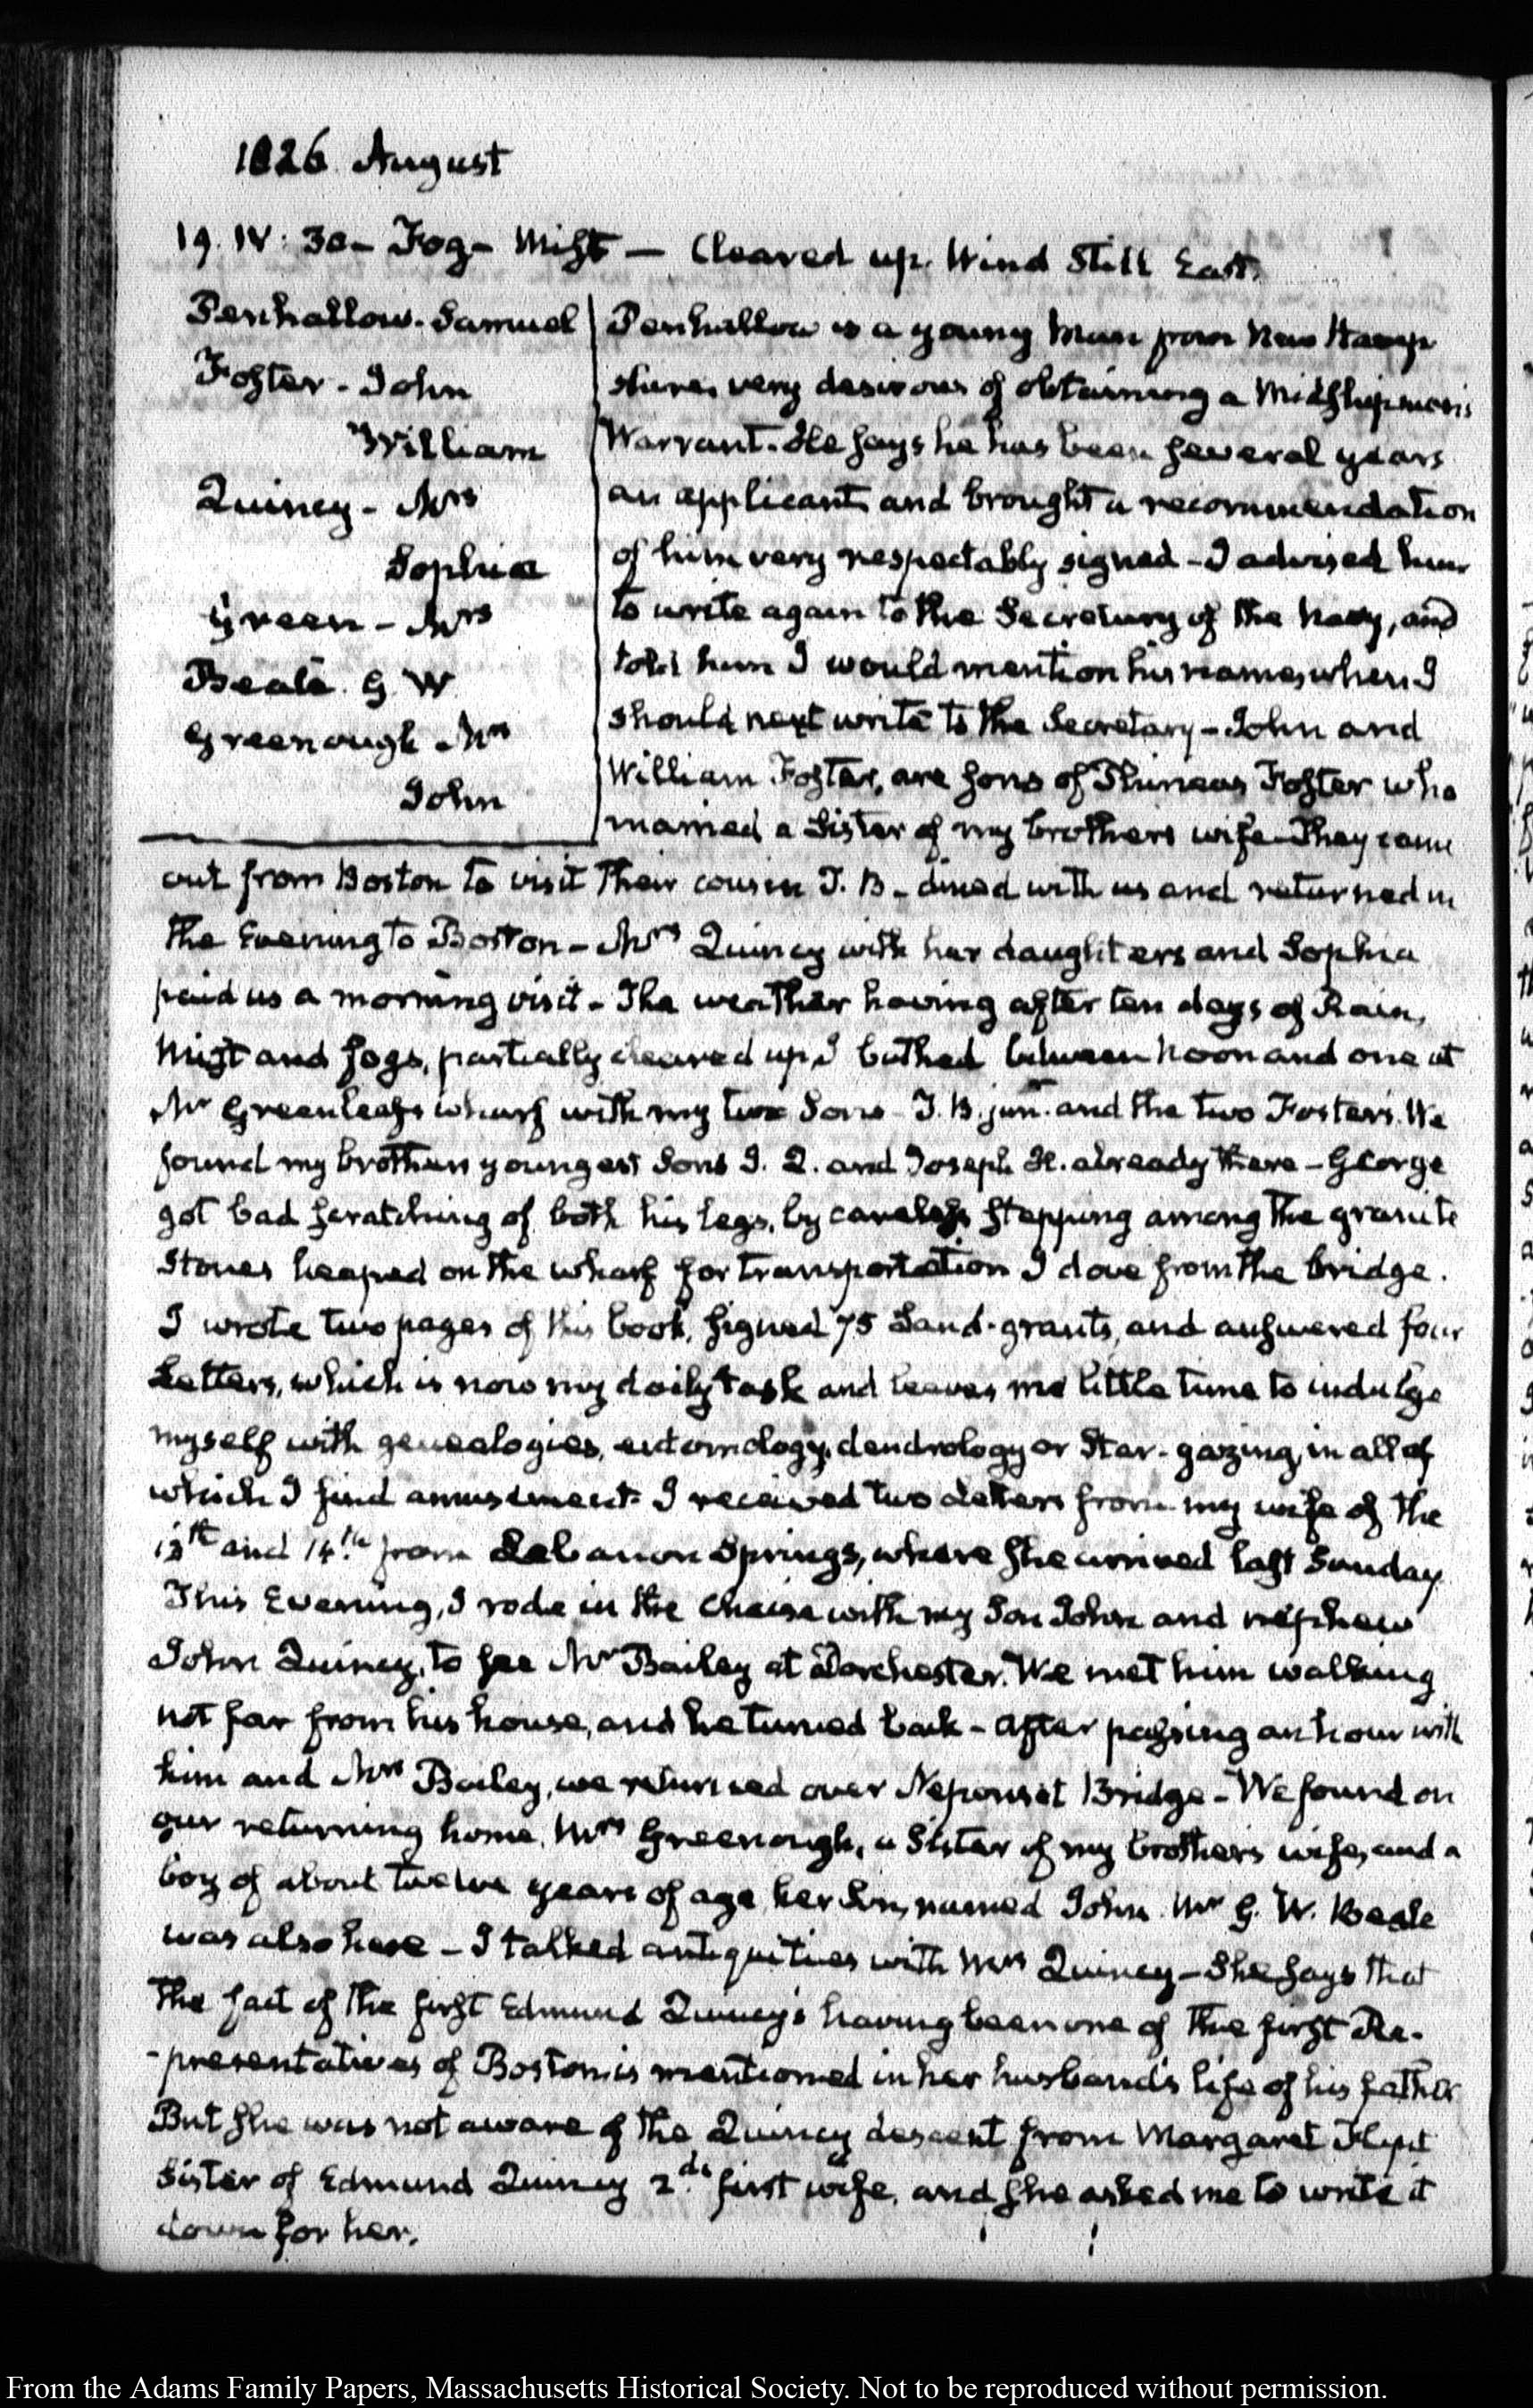 1826. August
19. IV: 30 – Fog – Mist — Cleared up. Wind still East.
Penhallow. Samuel
Foster – John
William
Quincy – Mrs
Sophia
Green – Mrs
Beale. G. W
Greenough Mrs
John
Penhallow is a young Man from New Hamp
shire, very desirous of obtaining a Midshipmen's
Warrant. He says he has been several years
an applicant, and brought a recommendation
of him very respectably signed – I advised him
to write again to the Secretary of the Navy, and
told him I would mention his name, when I
should next write to the Secretary – John and
William Foster, are sons of Phineas Foster who
married a Sister of my brother's wife – They came
out from Boston to visit their cousin T. B – dined with us and returned in
the Evening to Boston – Mrs Quincy with her daughters and Sophia
paid us a morning visit – The weather having after ten days of Rain,
Mist and fogs, partially cleared up, I bathed between Noon and one at
Mr Greenleaf's wharf with my two Sons – T. B. junr. and the two Fosters. We
found my brothers youngest Sons I. Q. and Joseph H. already there – George
got bad scratching of both his legs, by careless stepping among the granite
stones heaped on the wharf for transportation I dove from the bridge.
I wrote two pages of this book, signed 75 Land-grants, and answered four
Letters, which is now my daily task and leaves me little time to indulge
myself with genealogies, entomology, dendrology or Star-gazing, in all of
which I find amusement. I received two Letters from my wife of the
13th and 14th. from Lebanon Springs, where she arrived last Sunday
This Evening, I rode in the Chaise with my Son John and nephew
John Quincy, to see Mr Bailey at Dorchester. We met him walking
not far from his house, and he turned back – after passing an hour with
him and Mrs Bailey, we returned over Neponset Bridge – We found on
our returning home, Mrs Greenough, a Sister of my brother's wife, and a
boy of about twelve years of age, her Son, named John. Mr G. W. Beale
was also here – I talked antiquities with Mrs Quincy – She says that
the fact of the first Edmund Quincy's having been one of the first Re-
-presentatives of Boston is mentioned in her husband's life of his father
But she was not aware of the Quincy descent from Margaret Flynt
Sister of Edmund Quincy 2.d's first wife, and she asked me to write it
down for her.
From the Adams Family Papers, Massachusetts Historical Society. Not to be reproduced without permission.